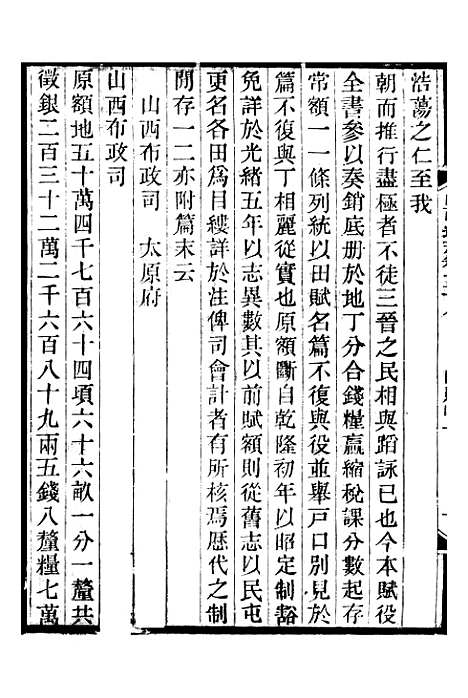 浩蕩之仁至我
朝而推行盡極者不徒三晉之民相與蹈詠已也今本賦役
全書參以奏銷底册於地丁分合錢糧贏縮稅課分數起存
常額一一條列統以田賦名篇不復與役並舉戶口別見於
篇不復與丁相麗從實也原額斷自乾隆初年以昭定制豁
免詳於光緒五年以志異數其以前賦額則從舊志以民屯
更名各田爲目縷詳於注俾司會計者有所核焉歴代之制
閒存一二亦附篇末云
山西布政司　太原府
山西布政司
原額地五十萬四千七百六十四頃六十六畝一分一釐共
徵銀二百三十二萬二千六百八十九兩五錢八釐糧七萬